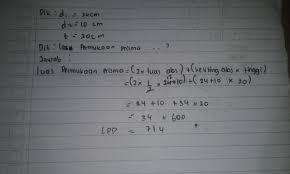 Dik : d₁ = 24cm
d₂ = 10 cm
t = 20cm
Dit : Luas Permukaan Prisma . . ?
Jawab :
Luas Permukaan Prisma = (2 x luas alas) + (keliling alas x tinggi)
= (2 x 1/2 x 24 x 10) + (24 + 10 x 20)
= 24 + 10 + 34 x 20
= 34 x 600
LPP = 714